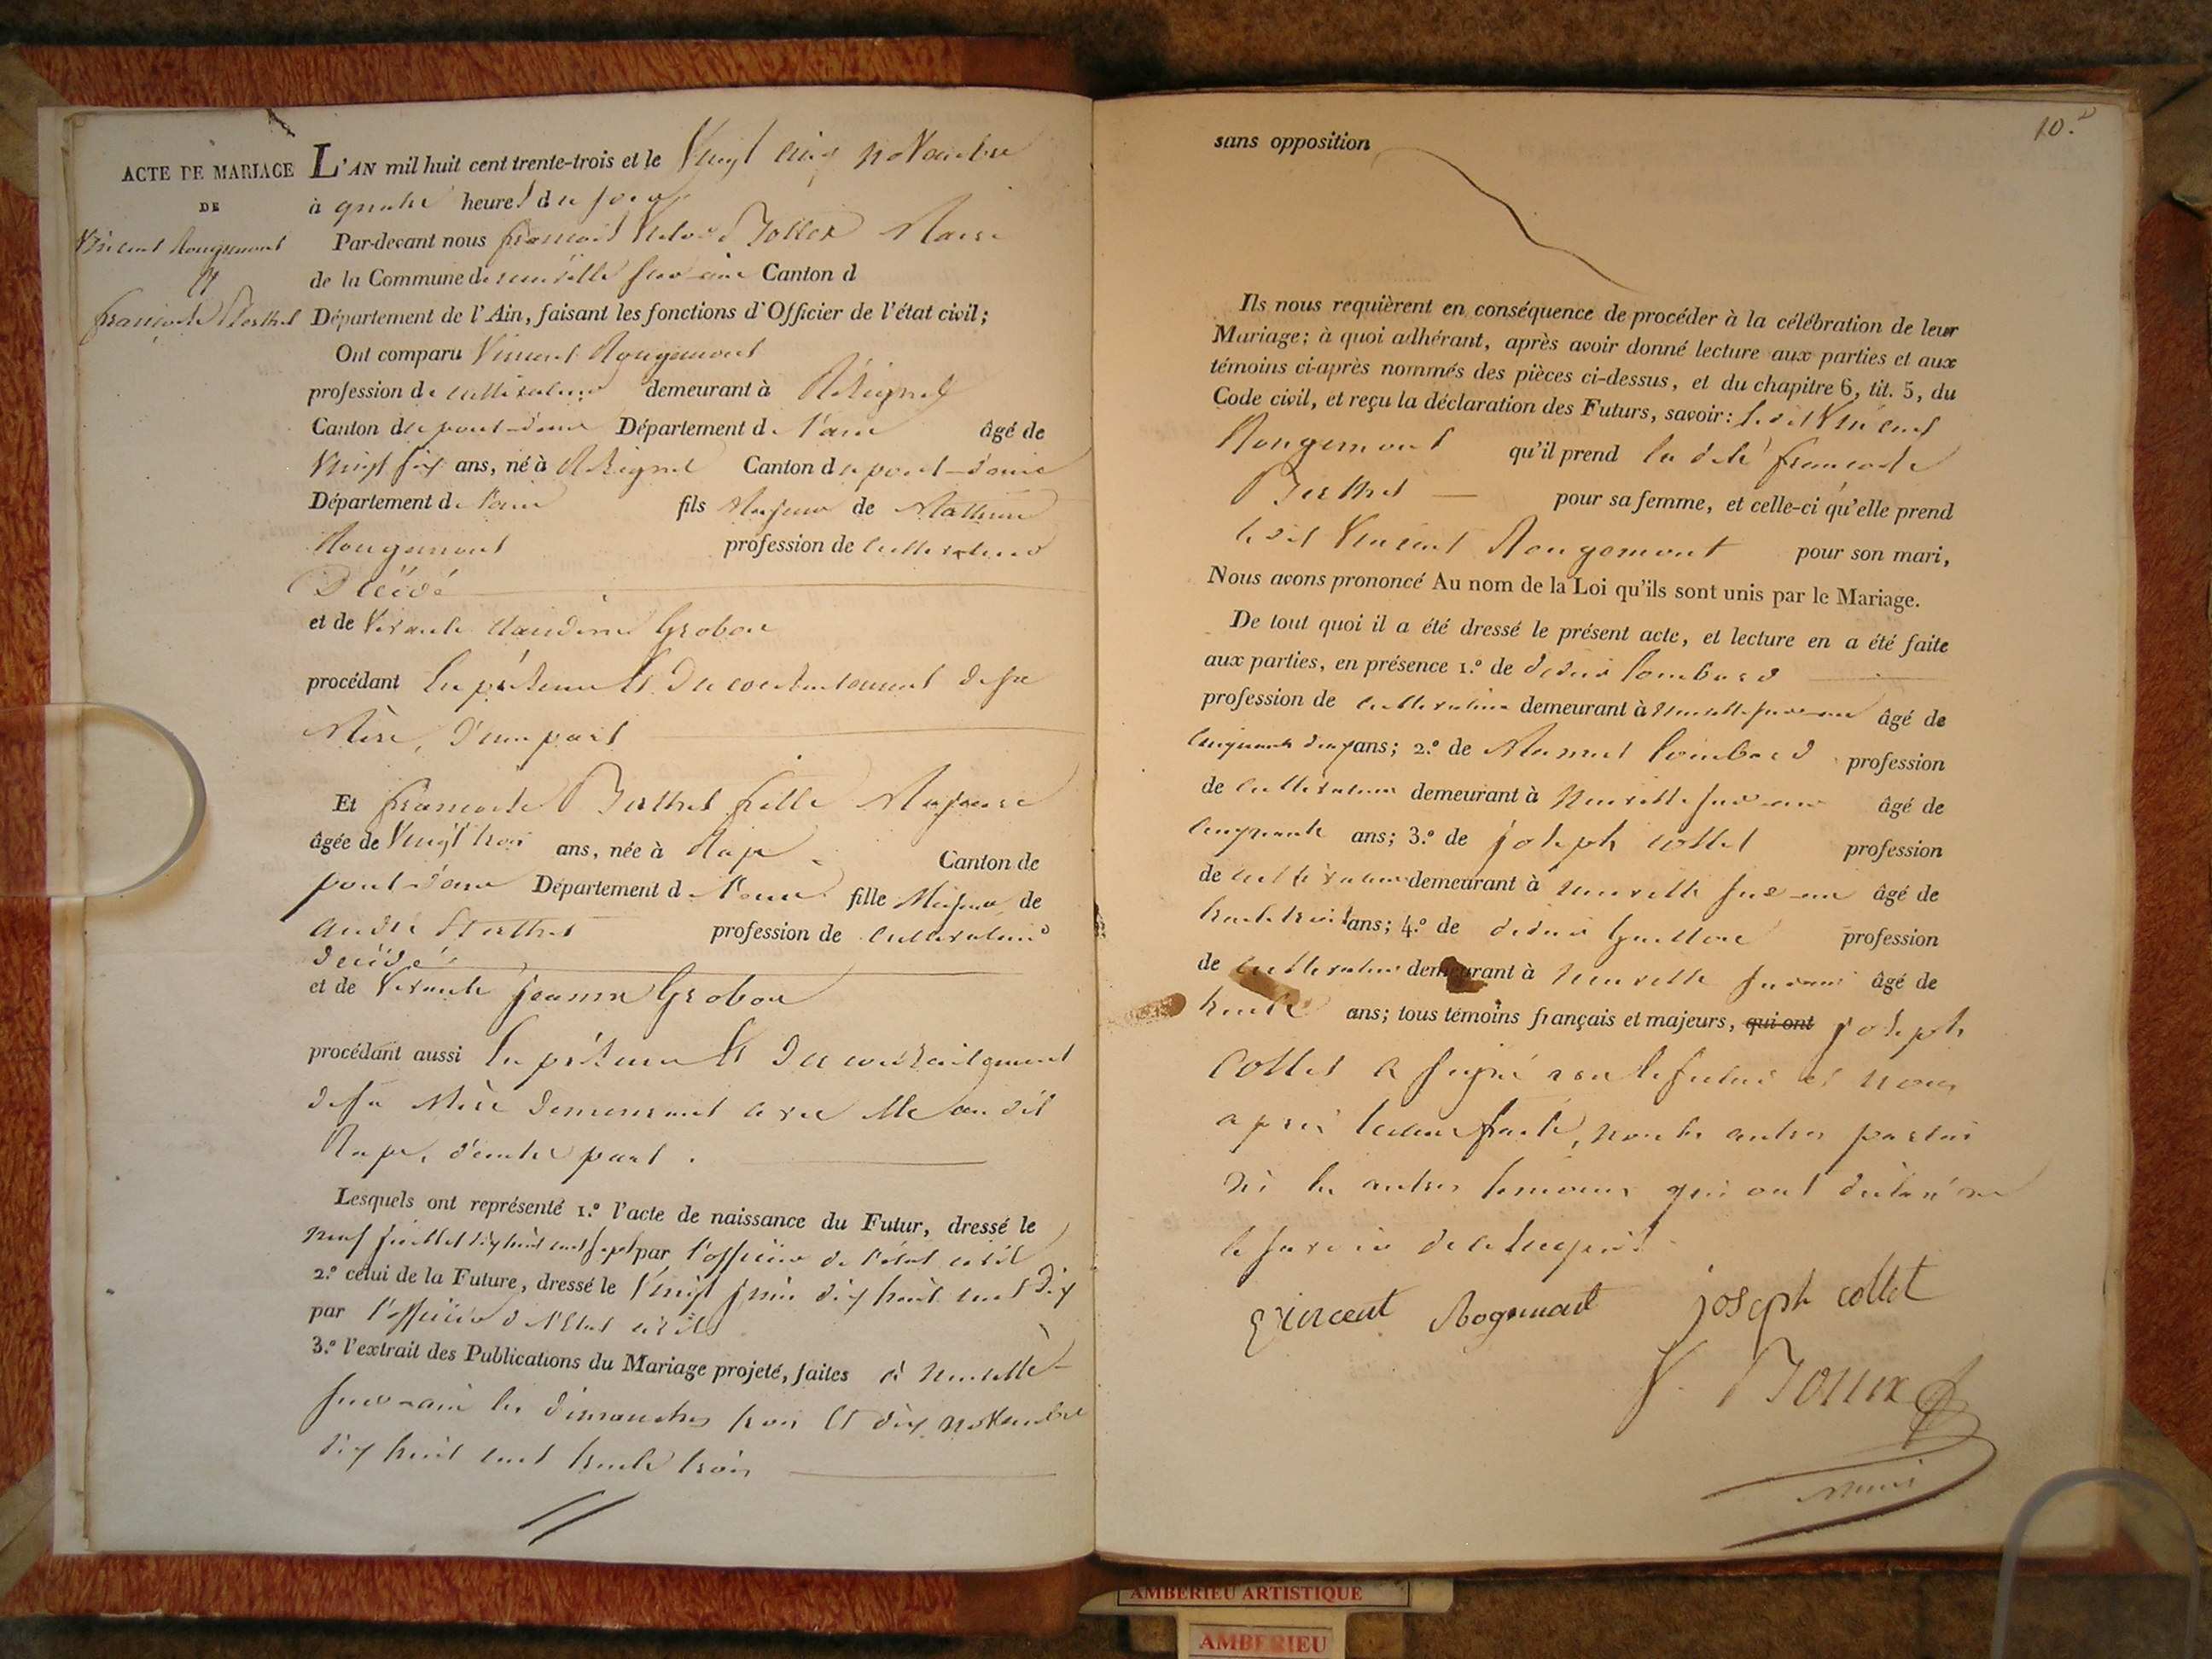 ACTE DE MARIAGE
DE
Vincent Rougemont
et
françoise Berthet
L'AN mil huit cent trente-trois et le Vingt cinq novembre
à quatre heures du soir
Par-devant nous françois Maire
de la Commune de neuville sur-ain Canton d
Département de l'Ain, faisant les fonctions d'Officier de l'état civil;
Ont comparu Vincent Rougemont
profession de cultivateur demeurant à Rhignat
Canton de pont-d'ain Département de l'ain âgé de
Vingt six ans, né à Rhignat Canton de pont-d'ain
Département de l'ain fils Majeur de
Rougemont profession de cultivateur
Décédé
et de Vivante Claudine Grobon
procédant en présence et du consentement de sa
Mère, d'une part
Et françoise Berthet fille Majeure
âgée de Vingt trois ans, née à Rape Canton de
pont-d'ain Département de l'ain fille Majeure de
andré Berthet profession de cultivateur
décédé
et de Vivante jeanne Grobon
procédant aussi en présence et du consentement
de sa Mère demeurant avec elle au dit
Rape, d'autre part.
Lesquels ont représenté 1.º l'acte de naissance du Futur, dressé le
neuf juillet dix huit cent sept par l'officier de l'état civil
2.º celui de la Future, dressé le Vingt juin dix huit cent dix
par l'officier de l'Etat civil
3.º l'extrait des Publications du Mariage projeté, faites à neuville-
sur-ain les dimanches trois et dix novembre
dix huit cent trente trois
10.
sans opposition
Ils nous requièrent en conséquence de procéder à la célébration de leur
Mariage; à quoi adhérant, après avoir donné lecture aux parties et aux
témoins ci-après nommés des pièces ci-dessus, et du chapitre 6, tit. 5, du
Code civil, et reçu la déclaration des Futurs, savoir: le dit Vincent
Rougemont qu'il prend la dite françoise
Berthet pour sa femme, et celle-ci qu'elle prend
le dit Vincent Rougemont pour son mari,
Nous avons prononcé Au nom de la Loi qu'ils sont unis par le Mariage.
De tout quoi il a été dressé le présent acte, et lecture en a été faite
aux parties, en présence 1.º de Lombard
profession de cultivateur demeurant à neuville sur-ain âgé de
cinquante ans; 2.º de Lombard profession
de cultivateur demeurant à neuville sur-ain âgé de
cinquante ans; 3.º de joseph collet profession
de cultivateur demeurant à neuville sur-ain âgé de
trente trois ans; 4.º de profession
de cultivateur demeurant à neuville sur ain âgé de
trente ans; tous témoins français et majeurs, qui ont joseph
Collet a signé avec le futur et nous
après lecture faite, non les autres parties
ni les autres témoins qui ont déclaré ne
le savoir de ce enquis.
Vincent Rogemont joseph collet
f. Bollex
Maire
AMBERIEU ARTISTIQUE
AMBERIEU